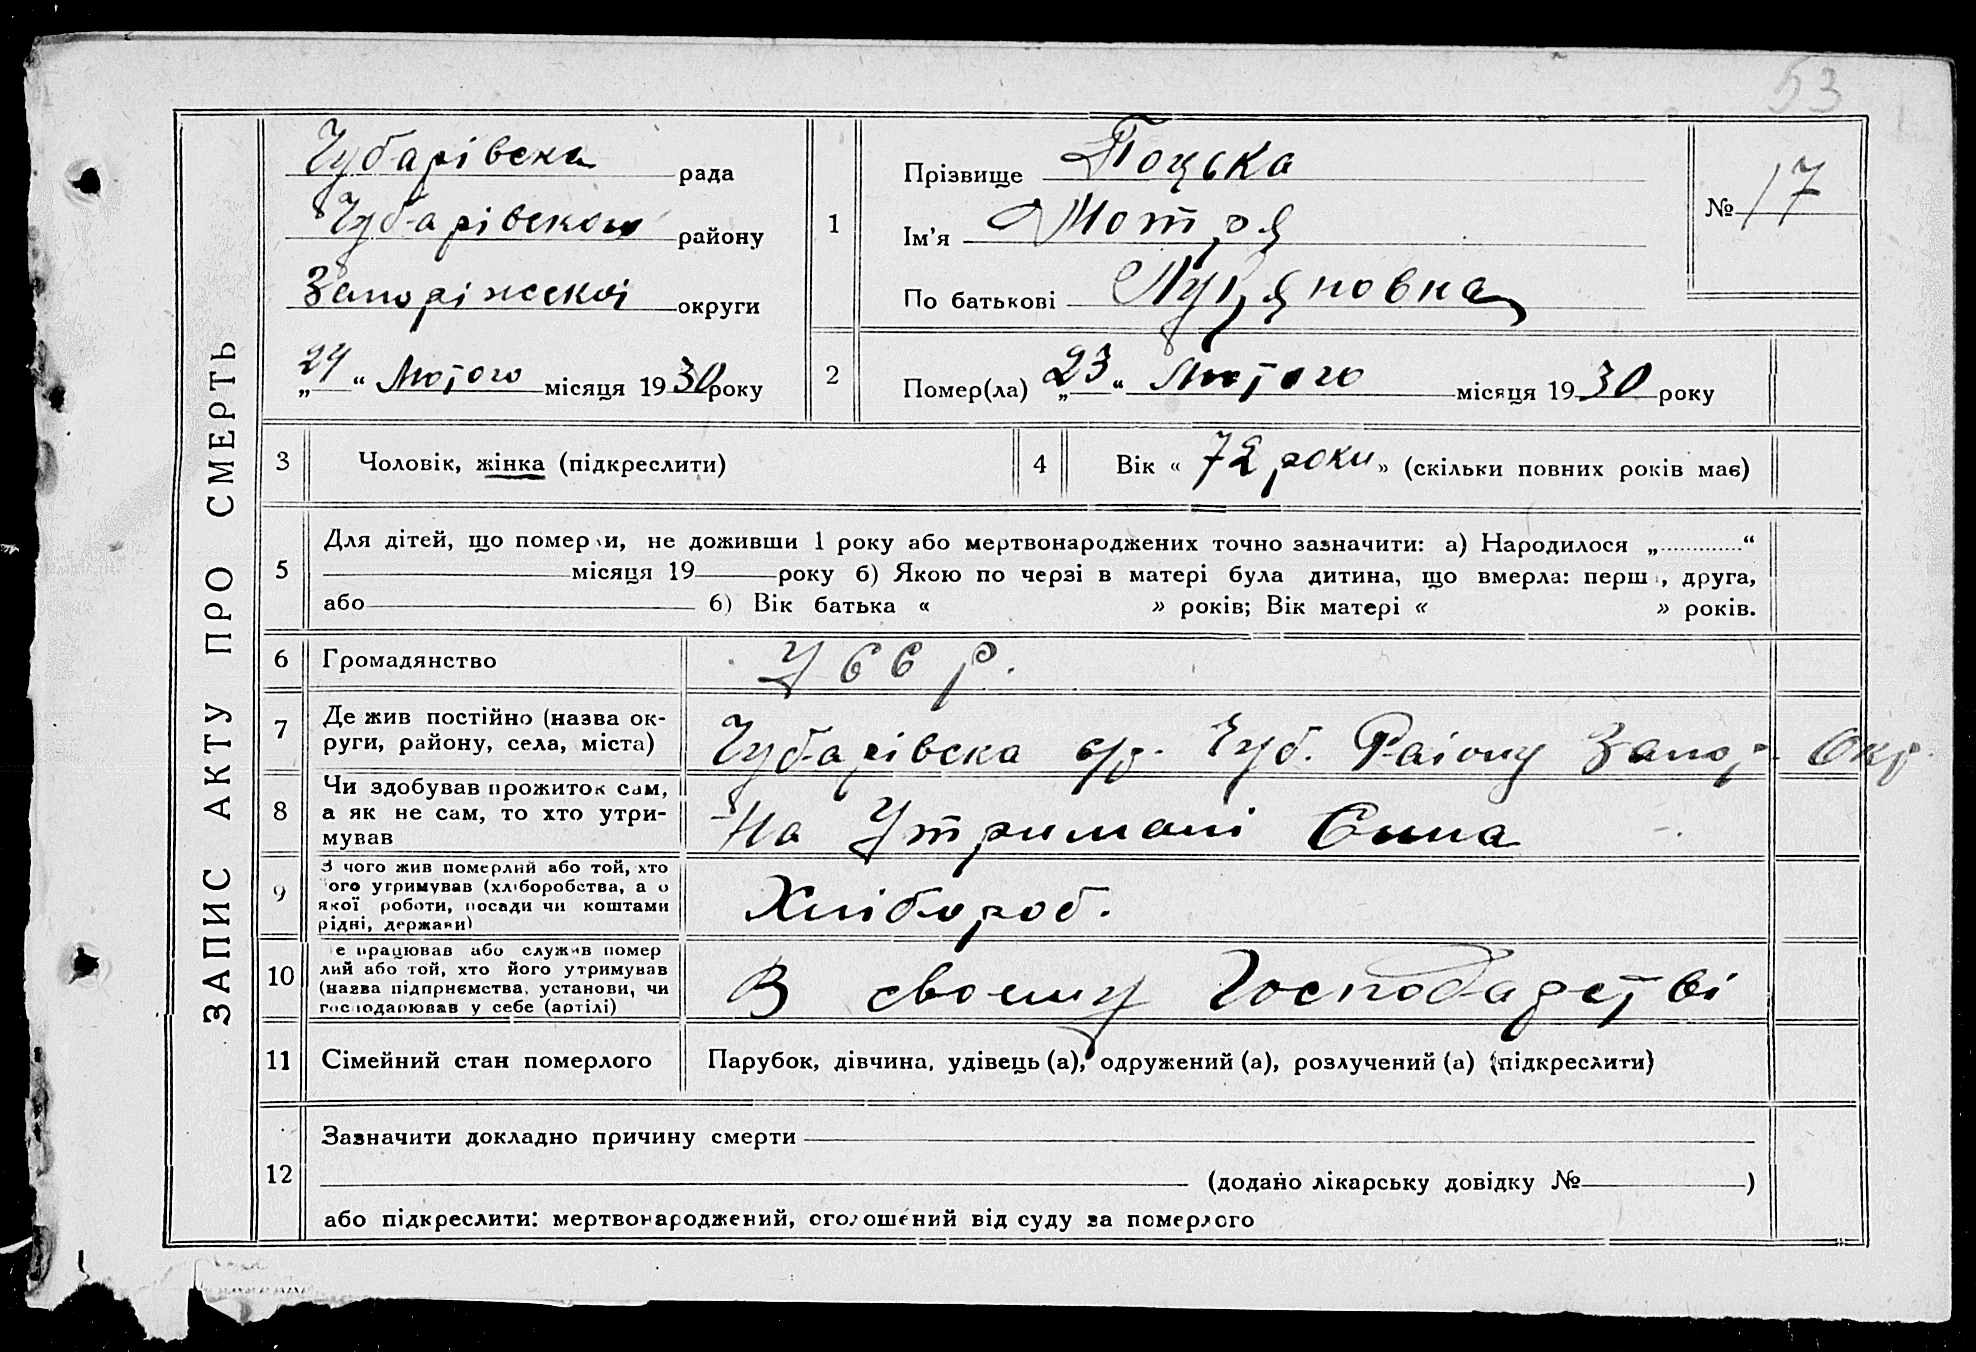 53
ЗАПИС АКТУ ПРО СМЕРТЬ
Чубарівска рада
Чубарівского району
Запоріжскої округи
„24“ Лютого місяця 1930 року
1
Прізвище Поцька
Ім'я Мотря
По батькові Лукяновна
№ 17
2
Помер(ла) „23“ Лютого місяця 1930 року
3 Чоловік, жінка (підкреслити)
4 Вік « 72 роки » (скільки повних років має)
5
Для дітей, що померли, не доживши 1 року або мертвонароджених точно зазначити: а) Народилося „ “
місяця 19 року б) Якою по черзі в матері була дитина, що вмерла: перш , друга,
або б) Вік батька « » років; Вік матері « » років.
6 Громадянство УССР.
7 Де жив постійно (назва ок-
руги, району, села, міста)
Чубарівска с/р. Чуб. Раіону Запор. Окр.
8 Чи здобував прожиток сам,
а як не сам, то хто утри-
мував
На Утримані Сина
9 З чого жив померлий або той, хто
ого утримував (хліборобства, а о
якої роботи, посади чи коштами
рідні, держави)
Хлібороб.
10 е працював або служив помер
лий або той, хто його утримував
(назва підприємства, установи, чи
господарював у себе (артілі)
В своєму Господарстві
11 Сімейний стан померлого Парубок, дівчина, удівець (а), одружений (а), розлучений (а) (підкреслити)
12
Зазначити докладно причину смерти
(додано лікарську довідку № )
або підкреслити: мертвонароджений, оголошений від суду за померлого